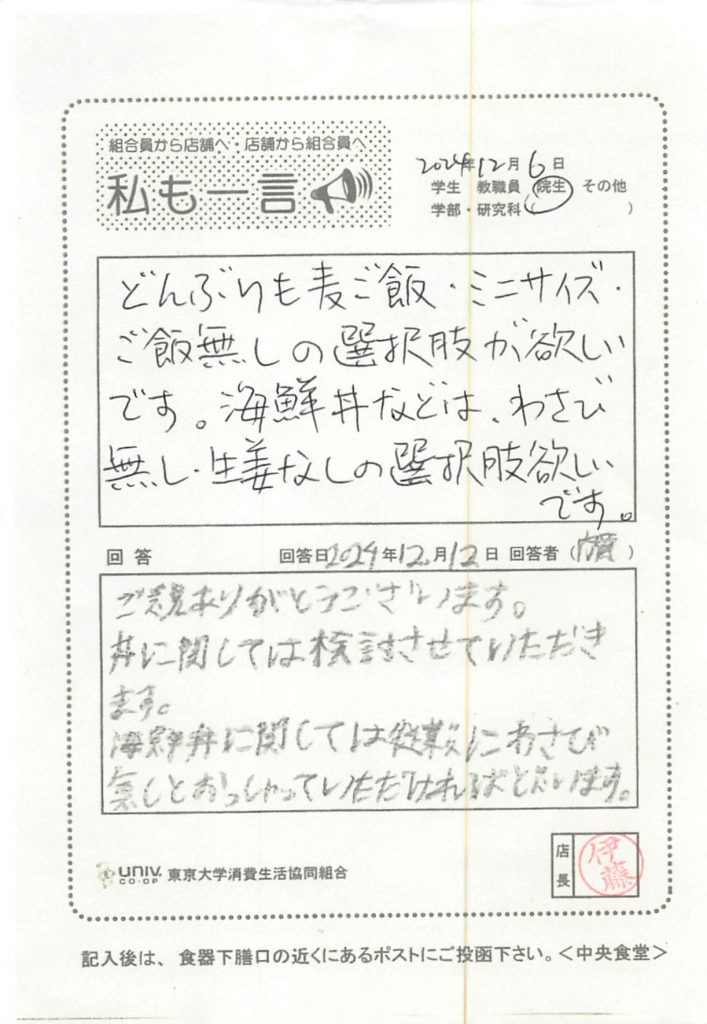 組合員から店舗へ・店舗から組合員へ
私も一言
2024年12月6日
学生 教職員 院生 その他
学部・研究科( )
どんぶりも麦ご飯・ミニサイズ・
ご飯無しの選択肢が欲しい
です。海鮮丼などは、わさび
無し・生姜なしの選択肢欲しい
です。
回答 回答日2024年12月12日 回答者( )
ご意見ありがとうございます。
丼に関しては検討させていただき
ます。
海鮮丼に関しては従業員にわさび
無しとおっしゃっていただければと思います。
UNIV.
CO-OP 東京大学消費生活協同組合
店長
伊藤
記入後は、食器下膳口の近くにあるポストにご投函下さい。<中央食堂>